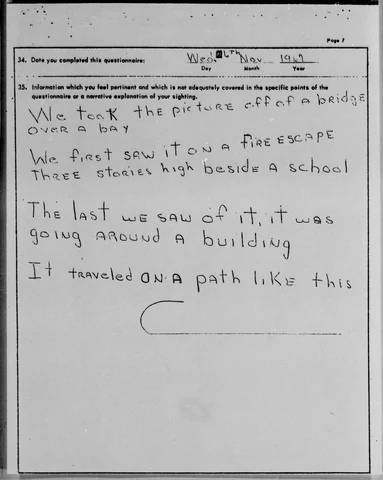 Page 7
34. Date you completed this questionnaire: Wed. Nov 1967
Day Month Year
35. Information which you feel pertinent and which is not adequately covered in the specific points of the
questionnaire or a narrative explanation of your sighting.
We took the picture off of a bridge
over a bay
We first saw it on a fire escape
three stories high beside a school
The last we saw of it, it was
going around a building
It traveled on a path like this